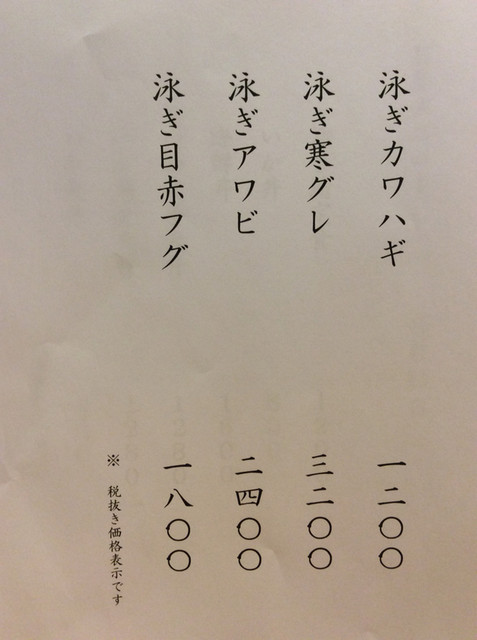 泳ぎカワハギ 一二〇〇
泳ぎ寒グレ 三二〇〇
泳ぎアワビ 二四〇〇
泳ぎ目赤フグ 一八〇〇
※ 税抜き価格表示です